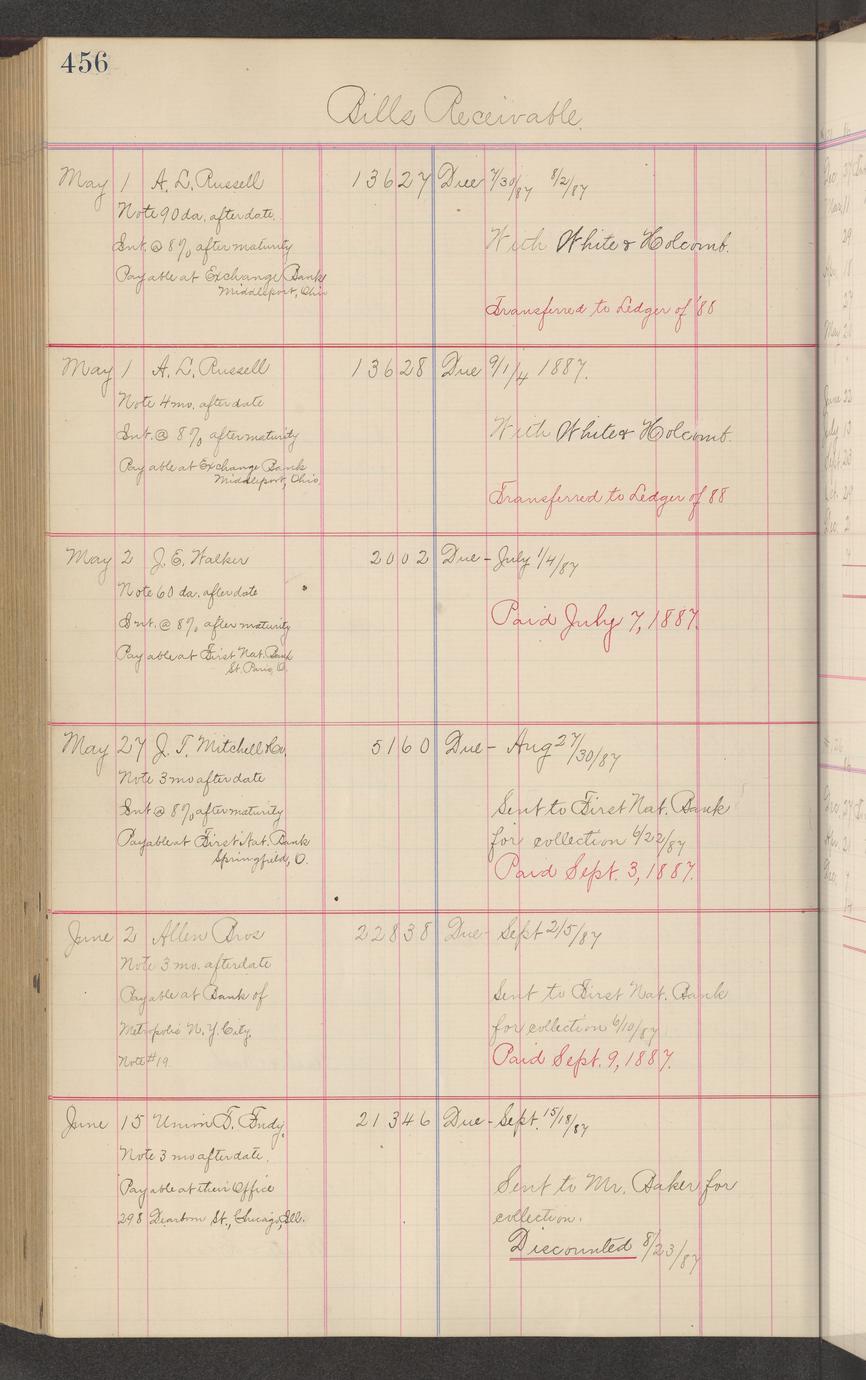 456
Bills Receivable
May 1 A. L. Russell 136 27 Due 7/30/87 8/2/87
Note 90 da. after date.
Int. @ 8% after maturity
With White & Holcomb.
Payable at Exchange Bank
Middleport, Ohio
Transferred to Ledger of '88
May 1 A. L. Russell 136 28 Due 9/1/4 1887.
Note 4 mo. after date
Int. @ 8% after maturity
With White & Holcomb.
Payable at Exchange Bank
Middleport, Ohio,
Transferred to Ledger of 88
May 2 J. E. Walker 20 02 Due - July 1/4/87
Note 60 da. after date
Int. @ 8% after maturity
Paid July 7, 1887.
Payable at First Nat. Bank
St. Paris, O.
May 27 J. T. Mitchell & Co. 51 60 Due - Aug 27/30/87
Note 3 mo after date
Int @ 8% after maturity
Sent to First Nat. Bank
Payable at First Nat. Bank
for collection 6/22/87
Springfield, O.
Paid Sept. 3, 1887.
June 2 Allen Bros 228 38 Due - Sept 2/5/87
Note 3 mo. after date
Payable at Bank of
Sent to First Nat. Bank
Metropolis N. Y. City.
for collection 6/10/87
Note #19
Paid Sept. 9, 1887.
June 15 Union F. Fndy. 213 46 Due - Sept. 15/18/87
Note 3 mo after date.
Payable at their Office
Sent to Mr. Baker for
298 Dearborn St., Chicago, Ill.
collection.
Discounted 8/23/87